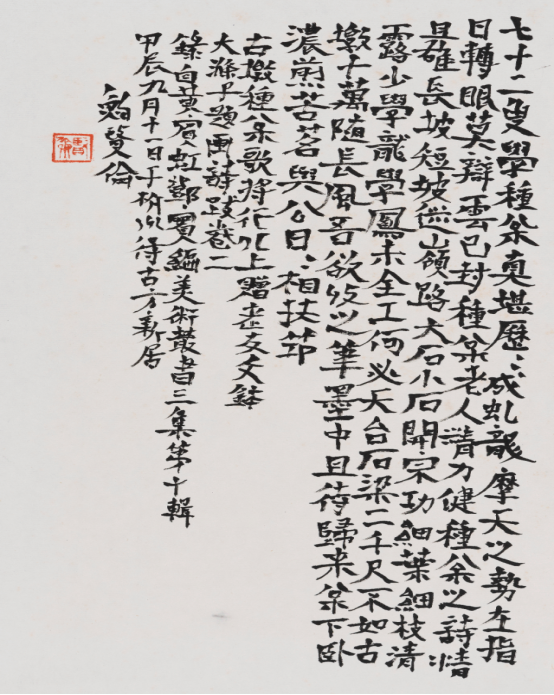 七十二叟學種枀真堪歷〻成虬龍摩天之勢在指
日轉眼莫辭雲已封種枀老人精力健種枀之詩情
且長坡短坡嶺路大石小石開宗功細葉細枝清
露少學龍學鳳未全工何必天台石梁二千尺不如古
墩十萬隨長風吾欲收之筆墨中且待歸来枀下卧
濃煎苦茗與公日〻相扶筇
古墩種枀歌将行上贈老友文鉢
大滌子題画詩跋卷二
錄自黄賓虹鄧實編美術叢書三集第十輯
甲辰九月十一日于杭州得古方新居
贊倫